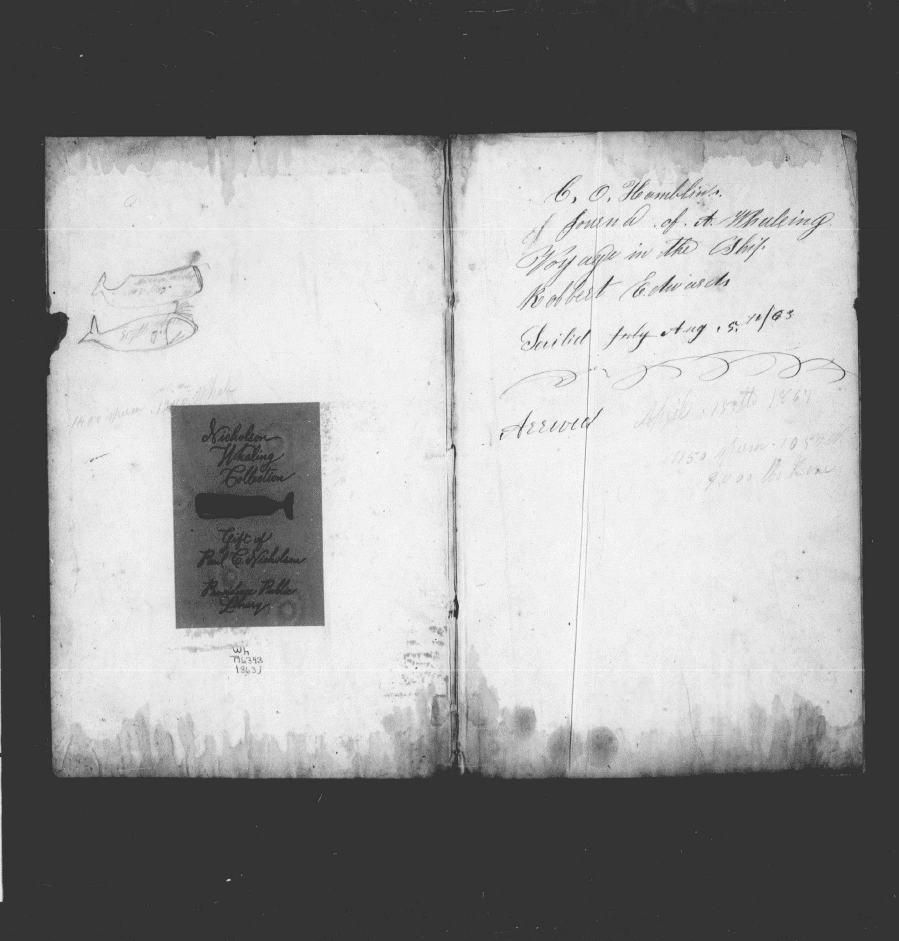 1400 Sperm
Nicholson
Whaling
Collection
Gift of
Paul C. Nicholson
Providence Public
Library
Wh
1863J
C. O. Hamblins.
of Journal of A Whaleing
Voyage in the Ship
Robbert Edwards
Sailed July Aug. 5th/63
Arrived April 15th 1867
1150 Sperm